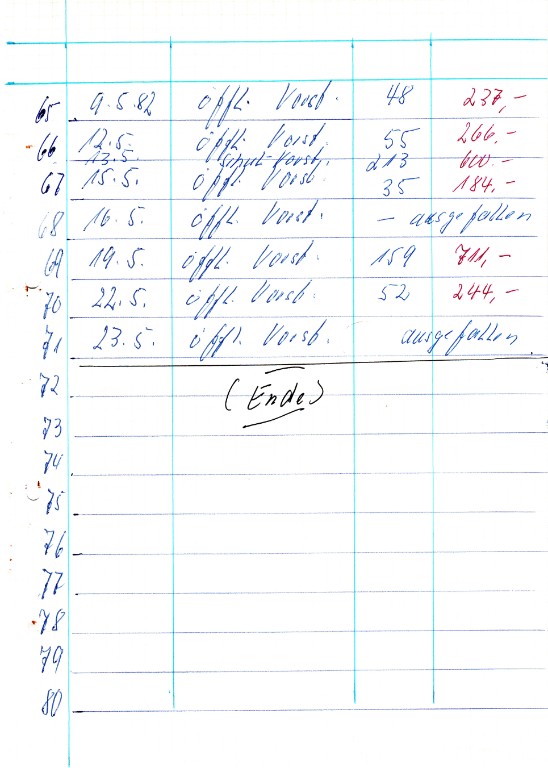 65 9.5.82 öffl. Vorst. 48 237,-
66 12.5. öffl. Vorst 55 266,-
13.5. Vorst. 213 600.-
67 15.5. öffl. Vorst. 35 184,-
68 16.5. öffl. Vorst. - ausgefallen
69 19.5. öffl. Vorst. 159 711,-
70 22.5. öffl. Vorst. 52 244,-
71 23.5. öffl. Vorst. ausgefallen
72 (Ende)
73
74
75
76
77
78
79
80